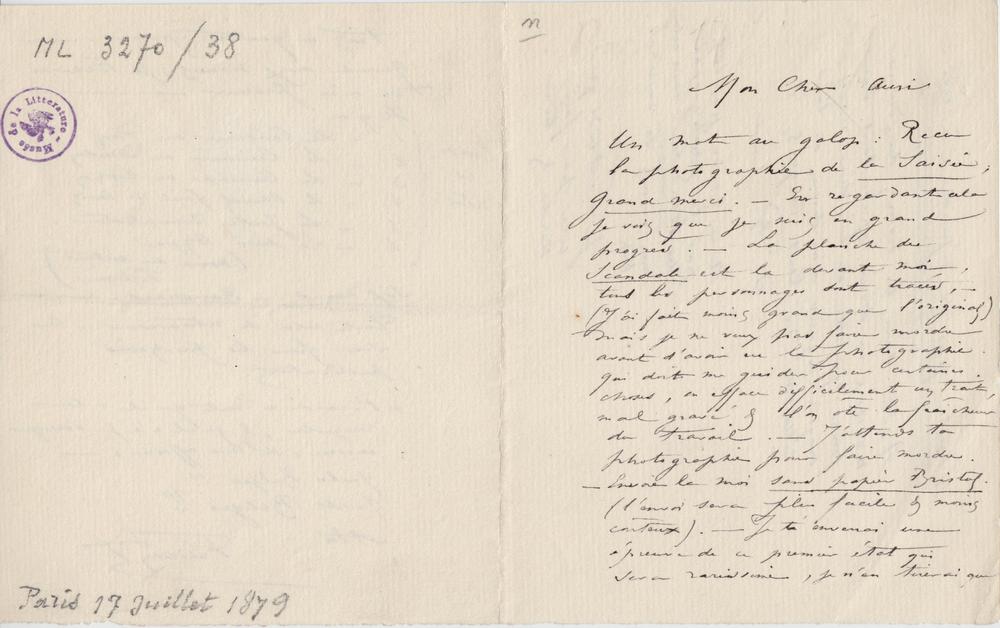 ML 3270/38
Musée de la Littérature
Paris 17 Juillet 1879
n
Mon Cher Ami
Un mot au galop : Reçu
la photographie de la Saisie,
Grand merci. — En regardant cela
je vois que je suis en grand
progrès. — La planche du
Scandale est là devant moi,
tous les personnages sont tracés, —
(J'ai fait moins grand que l'original)
mais je ne veux pas faire mordre
avant d'avoir vu la photographie
qui doit me guider pour certaines
choses, on efface difficilement un trait
mal gravé & l'on ôte la fraîcheur
du travail. — J'attends ta
photographie pour faire mordre.
— Envoie la moi sans papier Bristol.
(l'envoi sera plus facile & moins
coûteux). — Je t'enverrai une
épreuve de ce premier état qui
sera rarissime, je n'en tirerai que